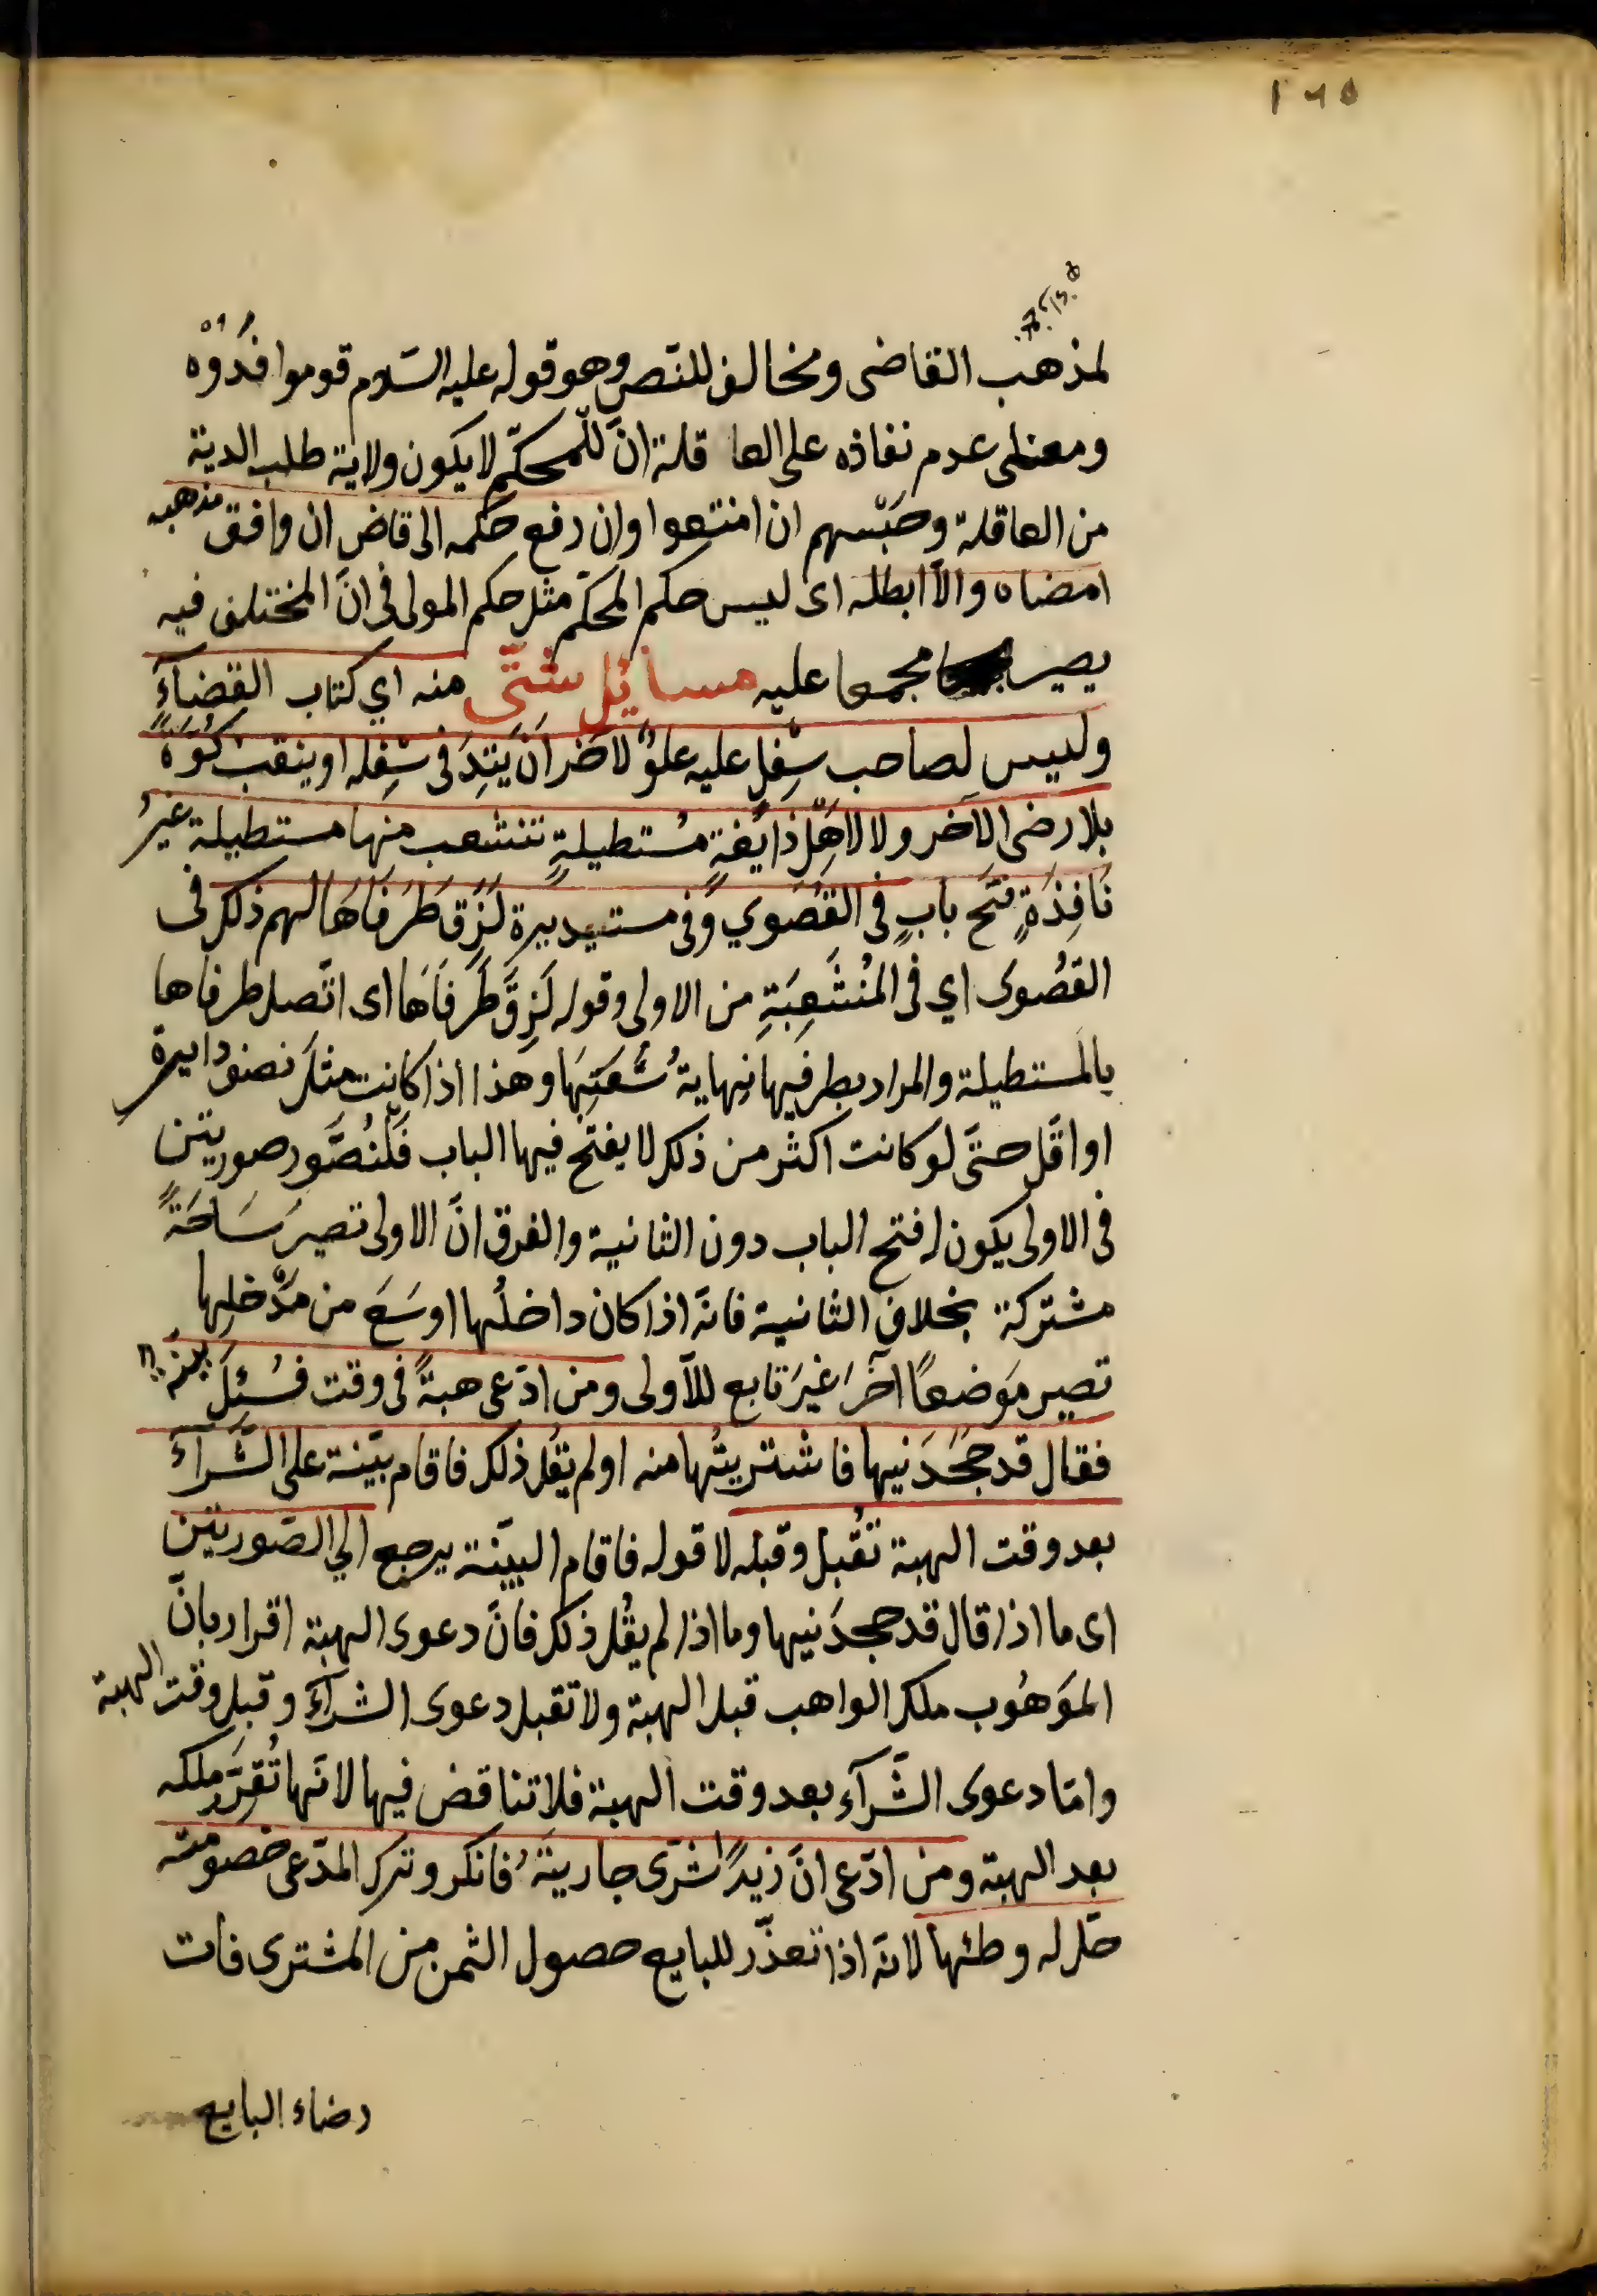 ١٦٥
لمذهب القاضى ومخالف للنّص وهو قوله عليه السّلام قوموا فدُوْه
ومعنى عدم نفاذه على العا قلة انّ للمحكّم لا يكون ولاية طلب الدية
من العاقلة وحَبْسهم ان امنتعوا وان رفع حكمه الى قاض ان وافق مذهبه
امضاه والاّ ابطله اى ليس حكم المحكّم مثل حكم المولى فى انّ المختلف فيه
يصير مجمعا عليه مسائل شتّى منه اي كتاب القضآء
وليس لصاحب سِفْلٍ عليه علوٌ لآخر اَنْ يَتِدَ فى سِفْله او ينقبَ كُوّةً
بلا رضى الآخر ولا لاهْلِ ذايغةٍ مُستطيلةٍ تنشعب منها مستطيلة غيرُ
نَافِذَةٍ فَتْح بابٍ فى القُصْوي وفى مستيديرة لَزِقَ طَرَفَاهَا لهم ذلك فى
القُصْوى اي فى المُنْشَعِبَةِ من الاولى وقوله لَزِقَ طَرَفَاهَا اى اتّصل طرفاها
بالمستطيلة والمراد بطرفيها نِهايةُ سَعَتِهَا وهذا اذا كانت مثلَ نصف دايرة
او اقَلّ حتّى لو كانت اكثر من ذلك لا يفتح فيها الباب فَلْنُصَّور صورتين
فى الاولى يكون له فتح الباب دون الثانية والفرق انّ الاولى تصير سَاحَةً
مشتركة بخلاف الثانية فانّه اذا كان داخلُها اوسَعَ من مَدْخلِها
تصير مَوضعًا آخَر غيرَ تابع للاَولى ومن ادّعى هبةً فى وقت فسُئِلَ بينة
فقال قد جَحَدَنيها فاشتريتُها منه او لم يقُل ذلك فاقام بيّنة على الشّرآء
بعد وقت الهبة تُقبل وقبله لا قوله فاقام البيّنة يرجع الي الصّورتين
اى ما اذا قال قد جحدَنيها وما اذا لم يقُل ذلك فانّ دعوى الهبة اقرار بانّ
المَوهُوب ملك الواهب قبل الهبة ولا تقبل دعوى الشرآء وقبل وقت الهبة
وامّا دعوى الشّرآء بعد وقت الهبة فلا تناقض فيها لانّها تُقرّر ملكه
بعد الهبة ومن ادّعى انّ زيدًا اشترى جاريتَه فانكر وترك المدّعى خصومته
حلّ له وطئها لانّه اذا تعذّر للبايع حصول الثمن من المشترى فات
رضاء البايع